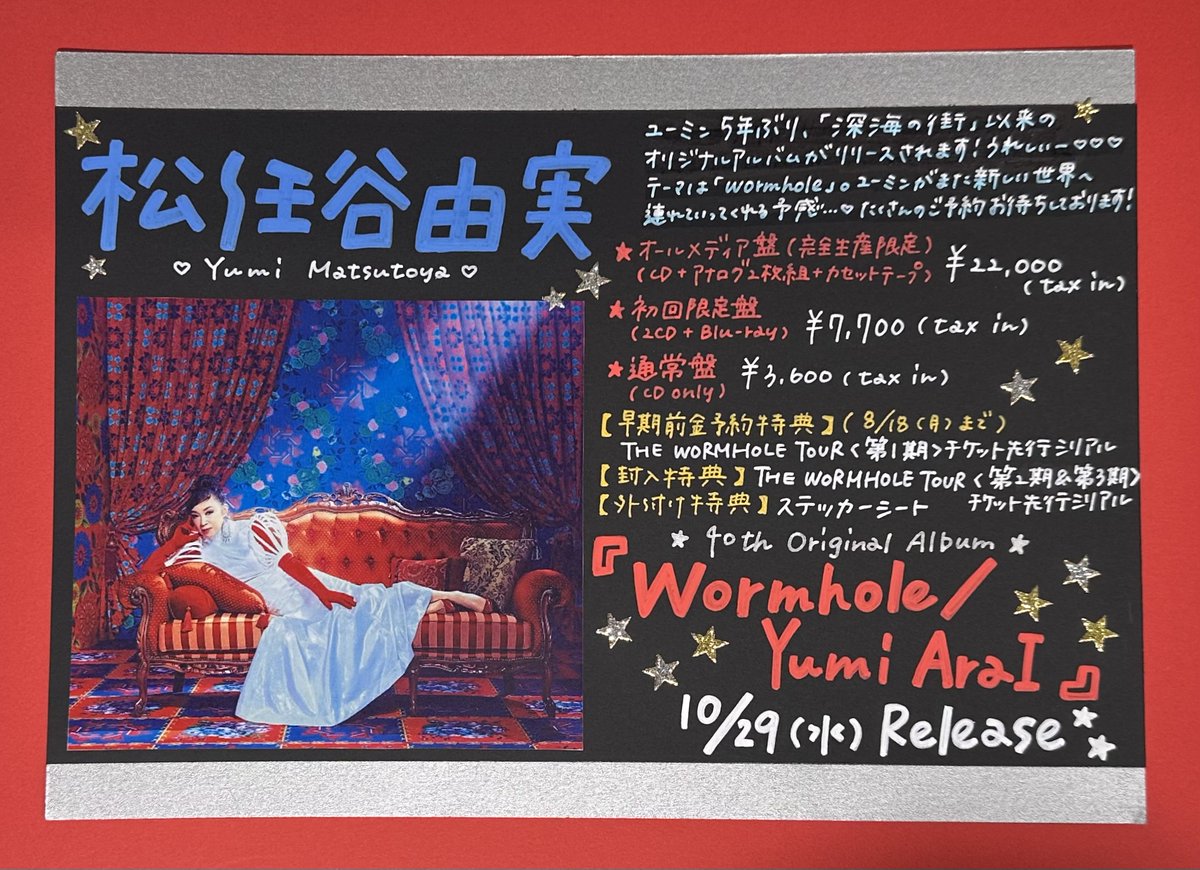 松任谷由実
♡ Yumi Matsutoya ♡
ユーミン 5年ぶり、「深海の街」以来の
オリジナルアルバムがリリースされます!うれしいー♡♡♡
テーマは「wormhole」。ユーミンがまた新しい世界へ
連れていってくれる予感…♡ たくさんのご予約お待ちしております!
★オールメディア盤(完全生産限定)
(CD+アナログ2枚組+カセットテープ)
¥22,000
(tax in)
★初回限定盤
(2CD+Blu-ray)
¥7,700(tax in)
★通常盤
(CD only)
¥3,600(tax in)
【早期前金予約特典】(8/18(月)まで)
THE WORMHOLE TOUR<第1期>チケット先行シリアル
【封入特典】THE WORMHOLE TOUR<第2期&第3期>
チケット先行シリアル
【外付け特典】ステッカーシート
★ 40th Original Album ★
『Wormhole/
Yumi AraI』
10/29(水) Release★★